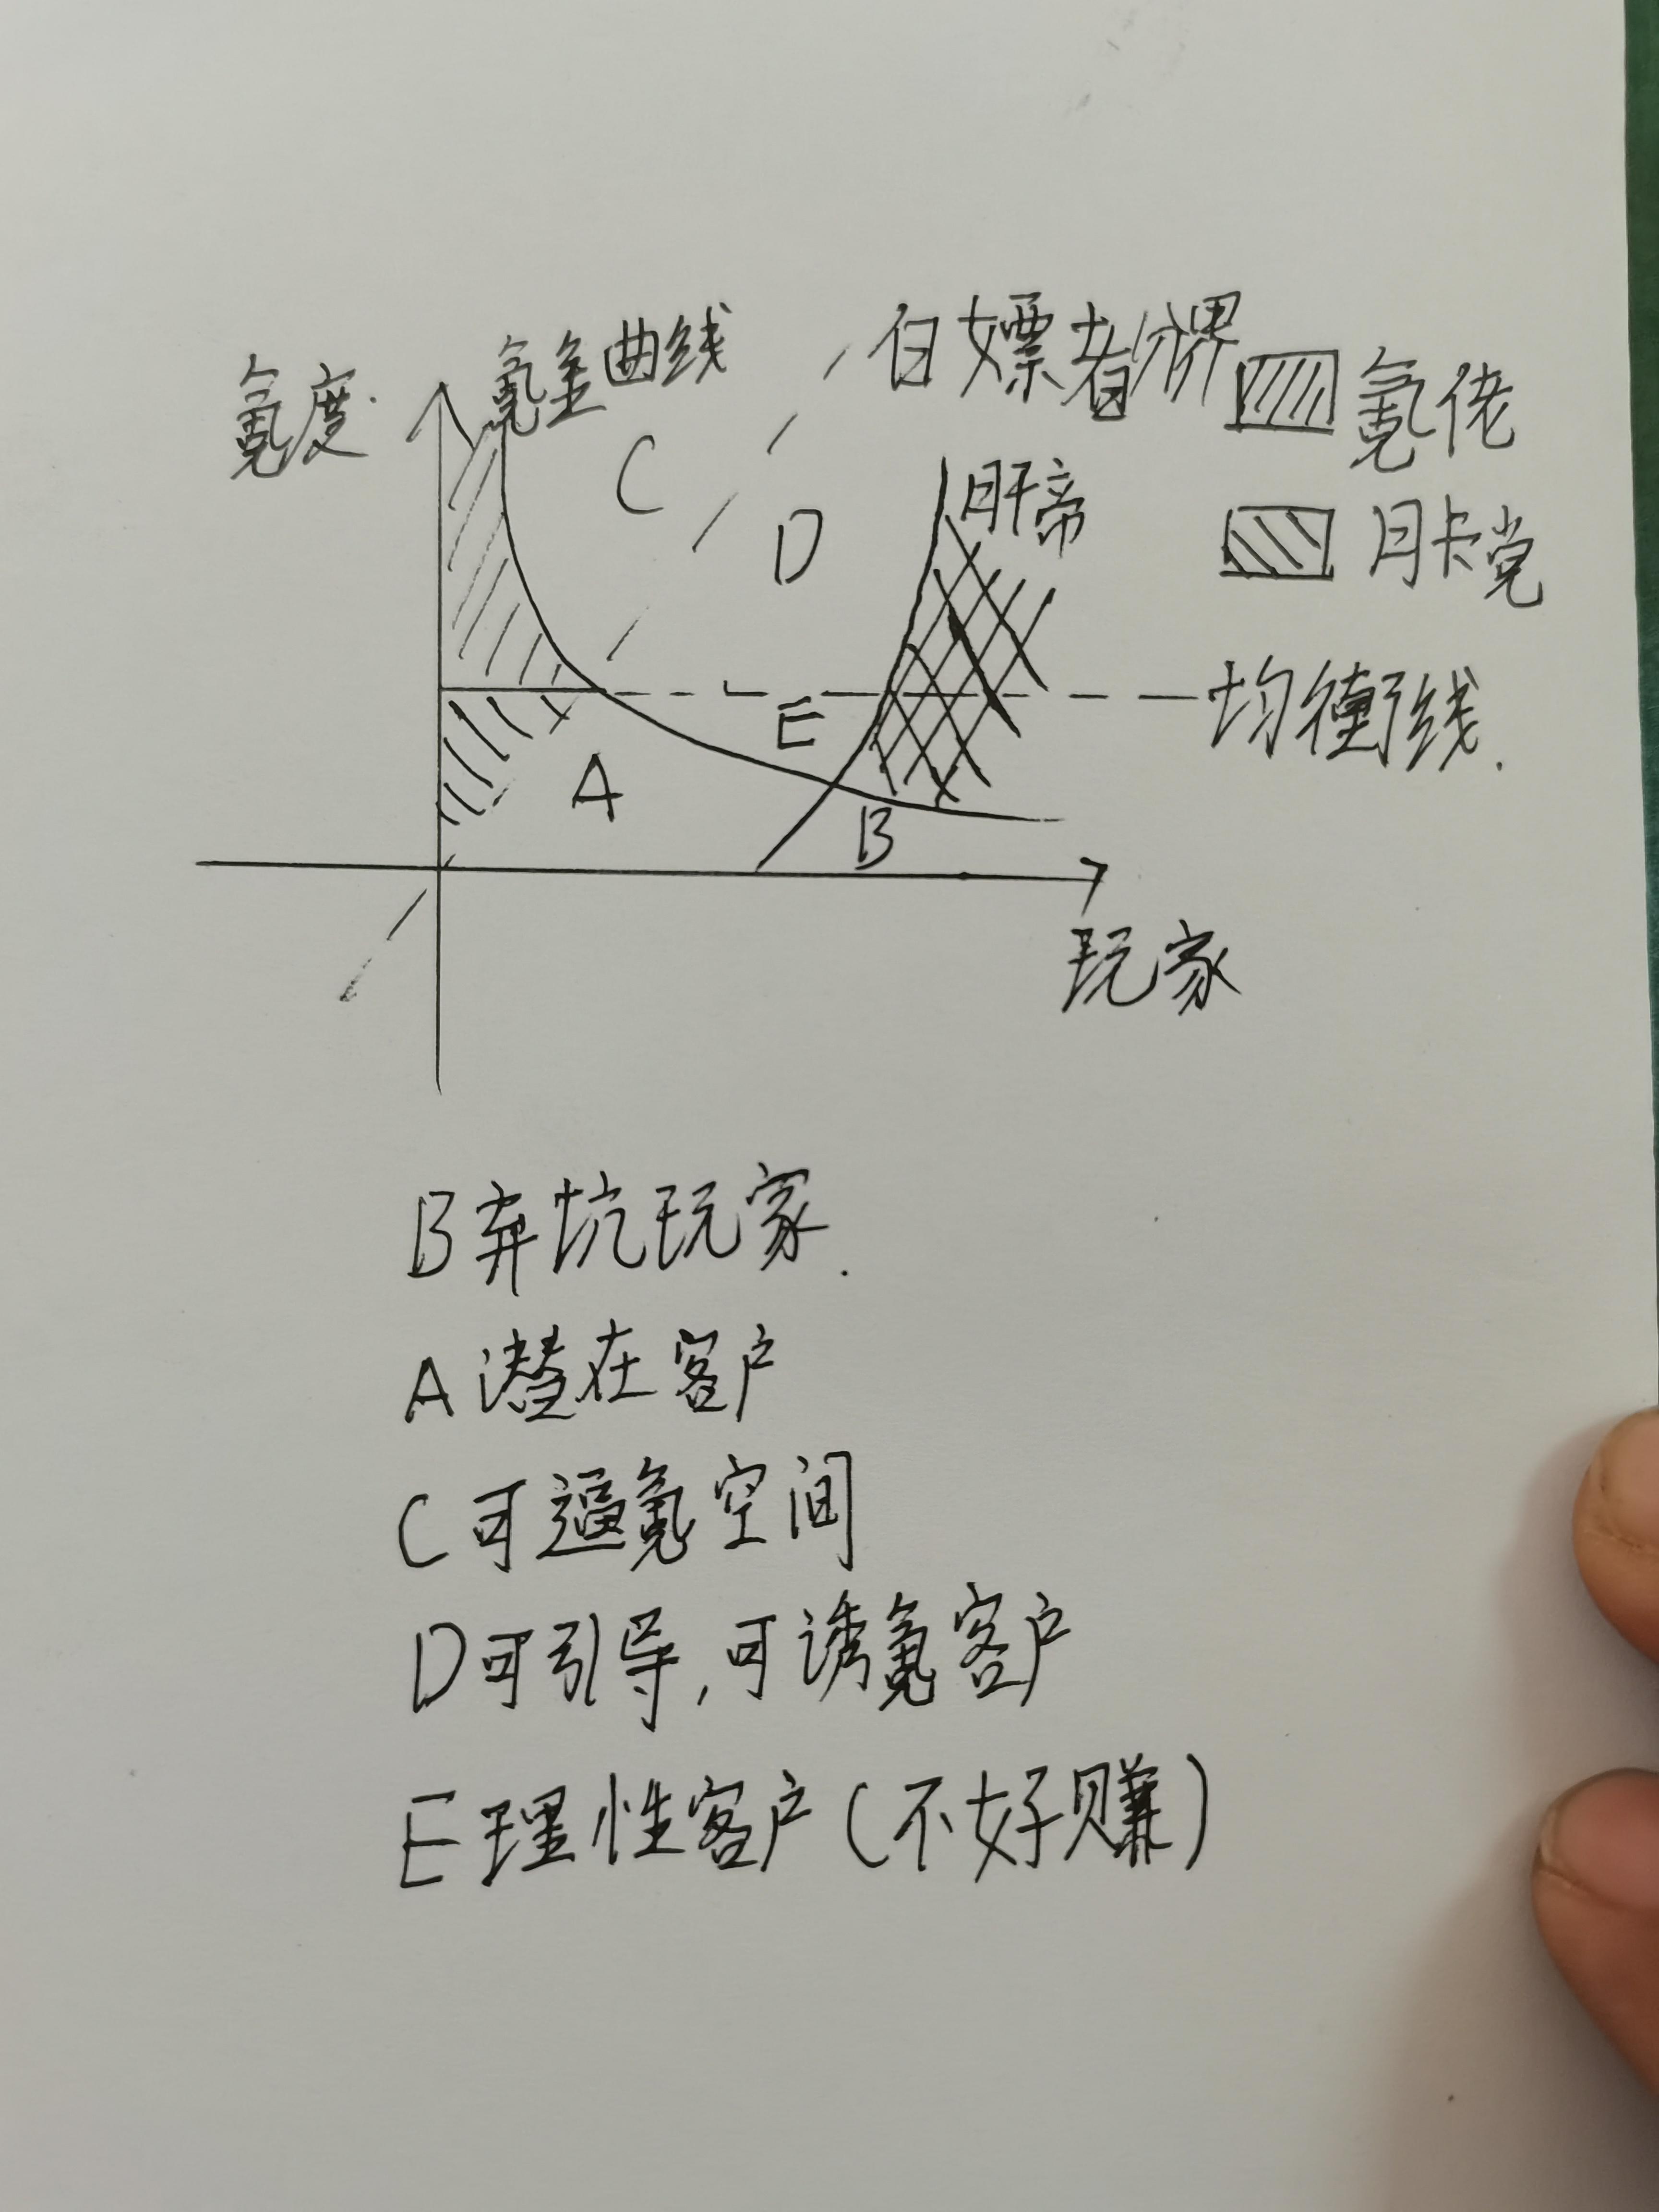 氪度
氪金曲线
白嫖者分界
氪佬
C
肝帝
月卡党
D
均衡线.
E
A
B
玩家
B 弃坑玩家.
A 潜在客户
C 可逼氪空间
D 可引导,可诱氪客户
E 理性客户(不好赚)